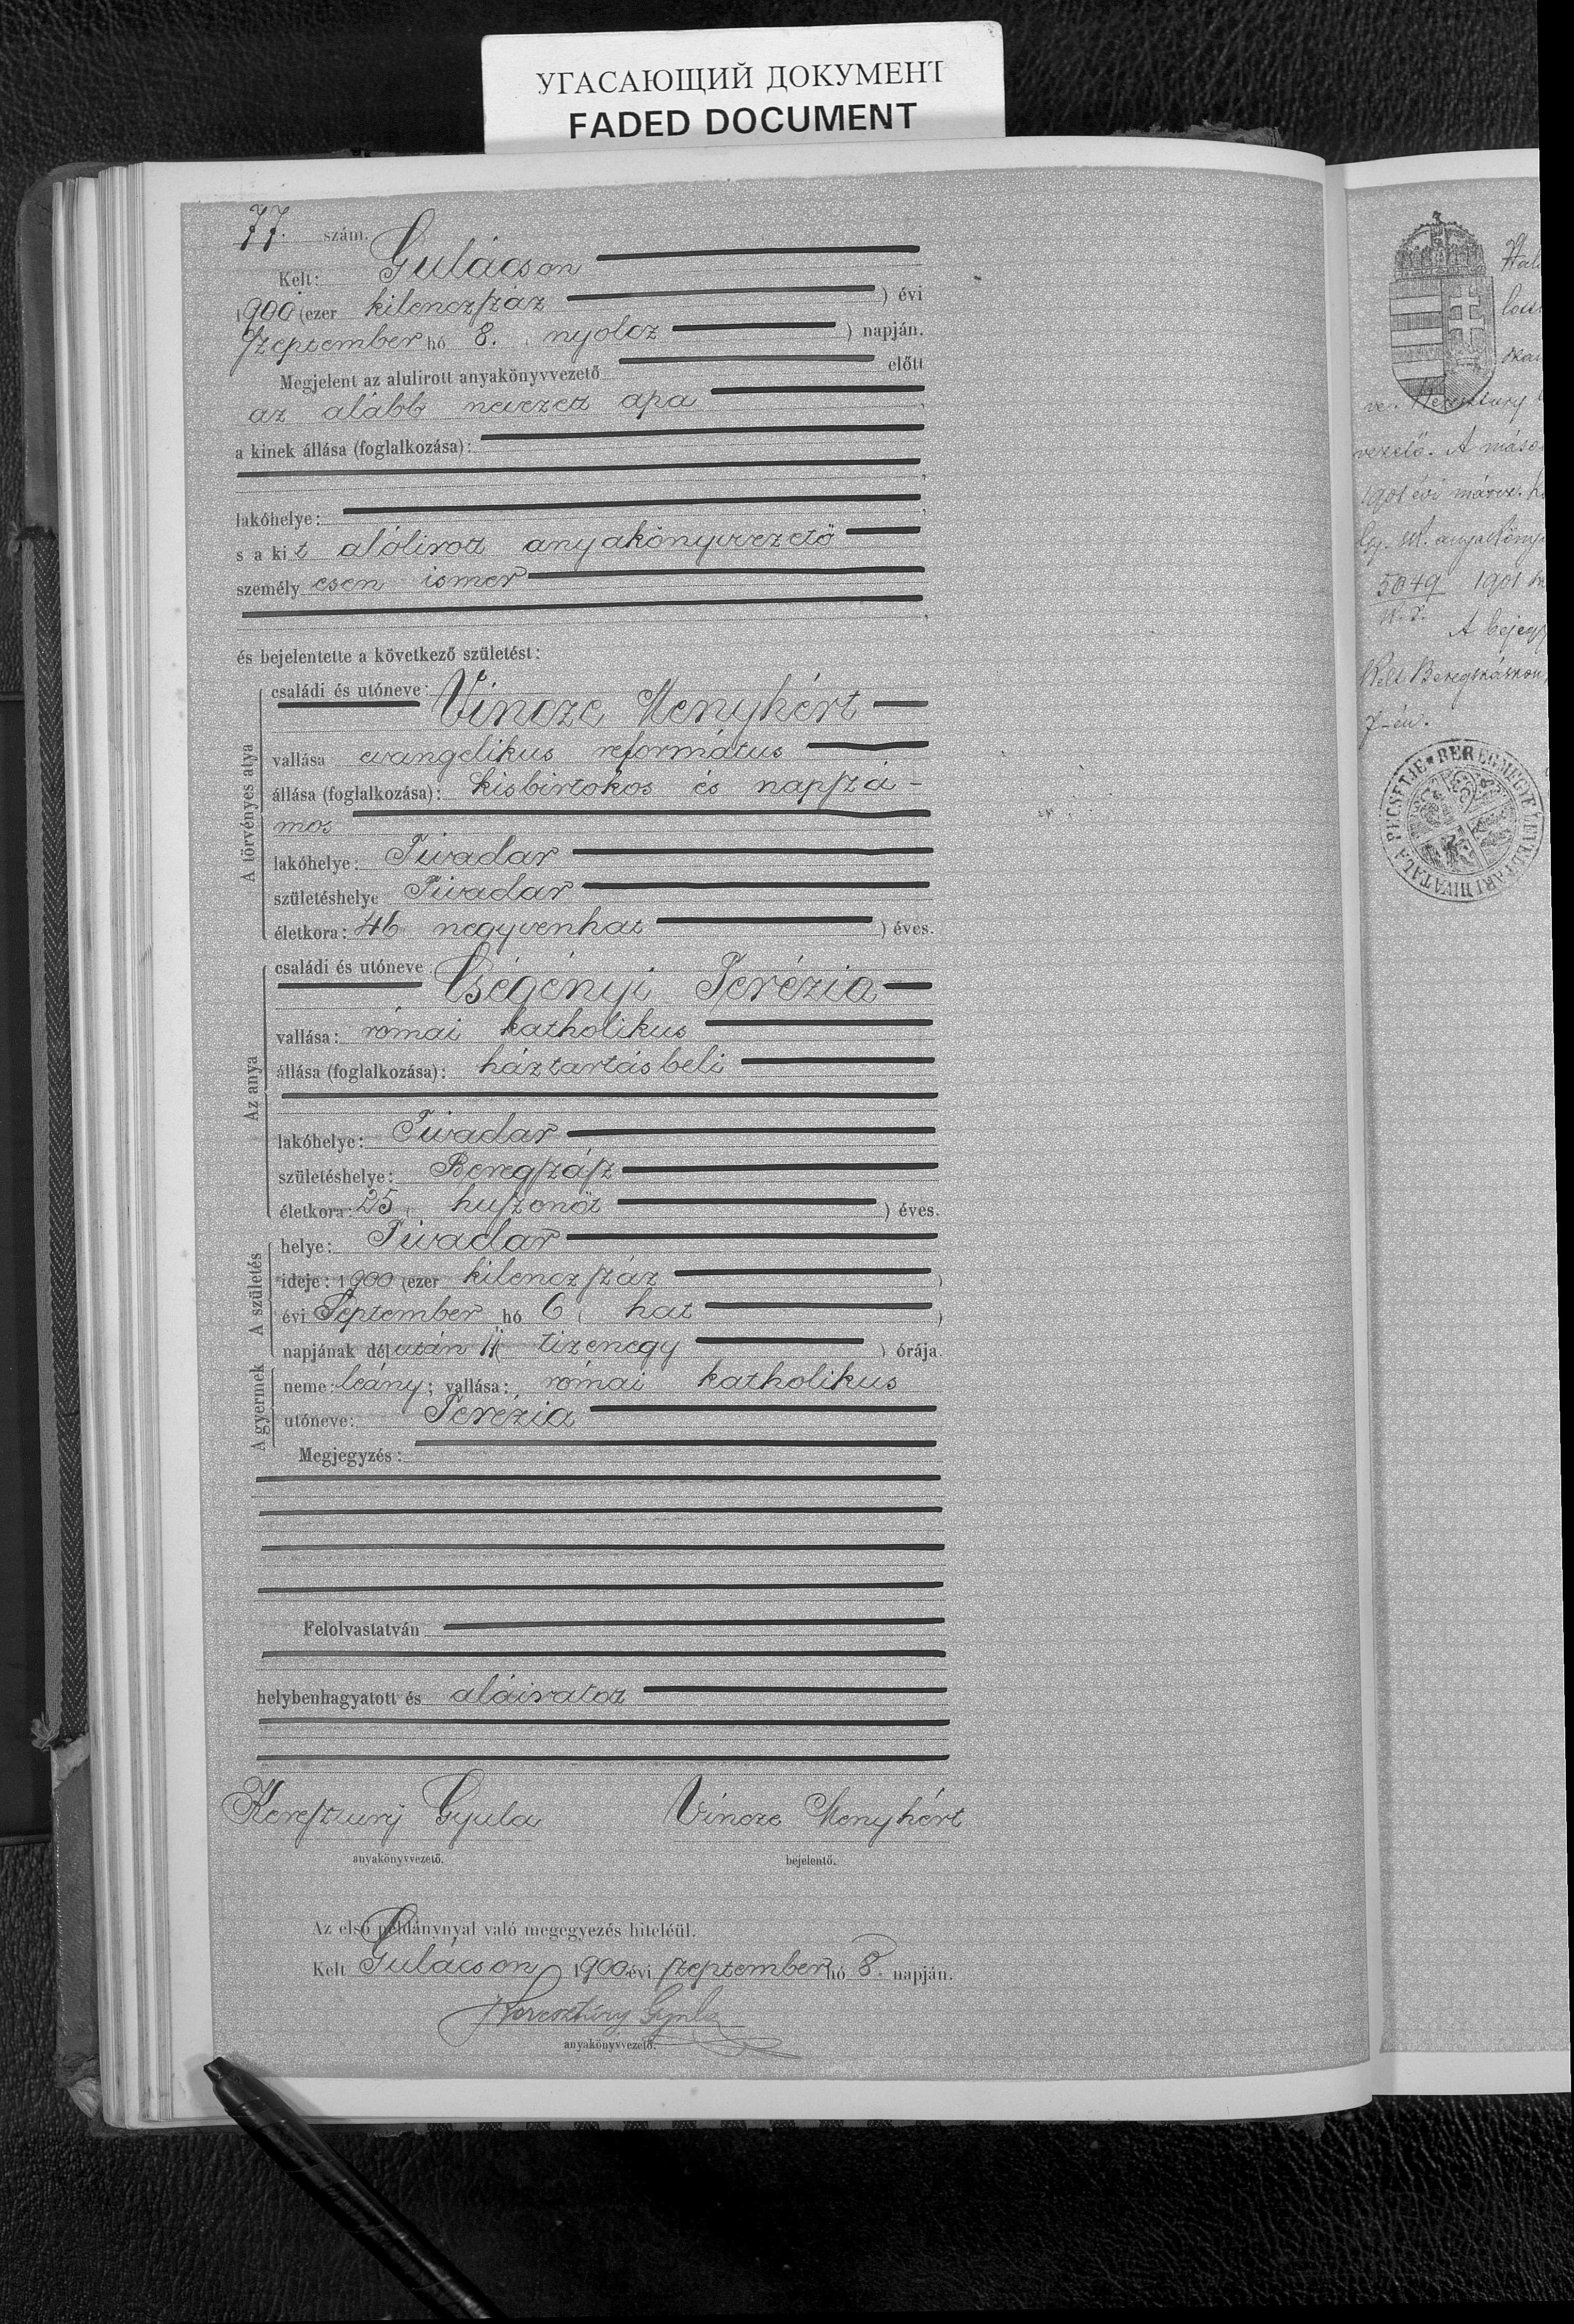 УГАСАЮЩИЙ ДОКУМЕНТ
FADED DOCUMENT
77. szám.
Kelt: Gulácson
1900 (ezer kilenczszáz ) évi
szeptember hó 8. ( nyolcz ) napján.
Megjelent az alulirott anyakönyvvezető előtt
az alább nevezett apa ,
a kinek állása (foglalkozása):
,
lakóhelye: ,
s a kit alólirott anyakönyvvezető
személyesen ismer
,
és bejelentette a következő születést:
A törvényes atya
családi és utóneve: Vincze Menyhért
vallása evangelikus református
állása (foglalkozása): kisbirtokos és napszá-
mos
lakóhelye: Tivadar
születéshelye Tivadar
életkora: 46 negyvenhat ) éves.
Az anya
családi és utóneve: Cségényi Terézia
vallása: római katholikus
állása (foglalkozása): háztartásbeli
lakóhelye: Tivadar
születéshelye: Beregszász
életkora: 25 ( huszonöt ) éves.
A születés
helye: Tivadar
ideje: 1900 (ezer kilenczszáz )
évi September hó 6 ( hat )
napjának délután 11 ( tizenegy ) órája.
A gyermek
neme: leány; vallása: római katholikus
utóneve: Terézia
Megjegyzés:
Felolvastatván
helybenhagyatott és aláiratott
Keresztury Gyula Vincze Menyhért
anyakönyvvezető. bejelentő.
Az első példánynyal való megegyezés hiteléül.
Kelt Gulácson 1900 évi szeptember hó 8. napján.
Keresztury Gyula
anyakönyvvezető.
ve. Keresztury
vezető. A máso
1901 évi márcz. h
5049 1901
A bejegy
Kelt Beregszászon,
7-én.
BEREGMEGYE LEVÉLTÁRI HIVATALA PECSÉTJE